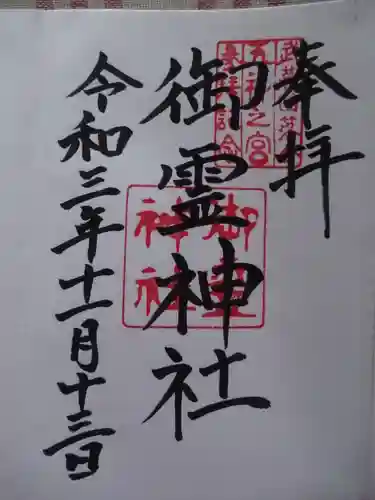 奉拝
御霊神社
令和三年十一月十三日
御霊
神社
五社之宮